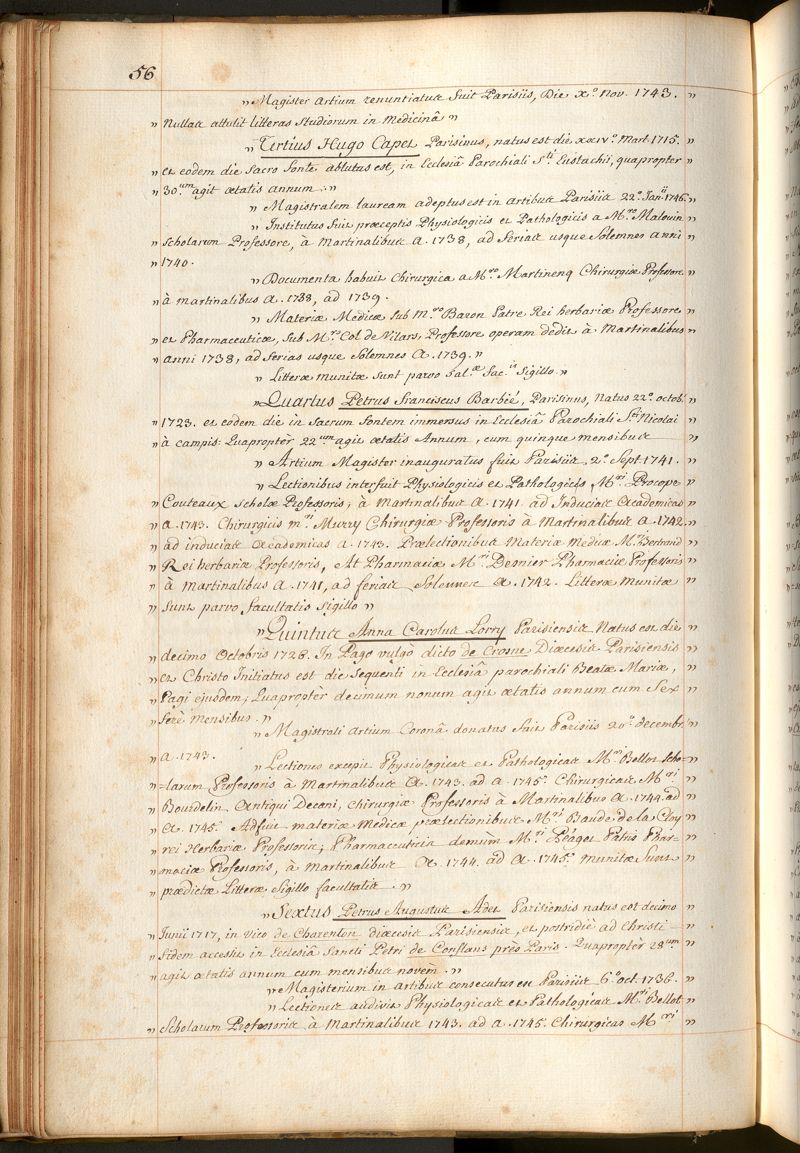 56
„ Magister Artium renuntiatus fuit Parisiis, Die xo. Nov. 1743. „
„ Nullas attulit litteras studiorum in Medicinâ „
„ Tertius Hugo Capet Parisinus, natus est die xxivo. Mart. 1715. „
„ et eodem die Sacro fonte ablutus est, in Ecclesiâ Parochiali Sti. Eustachii, quapropter „
„ 30um. agit ætatis annum. „
„ Magistralem lauream adeptus est in artibus Parisiis 22o. Janii. 1746. „
„ Institutus fuit præceptis Physiologicis et Pathologicis a Mro. Malouin „
„ Scholarum Professore, à Martinalibus a. 1738, ad ferias usque Solemnes anni „
„ 1740.
„ Documenta habuit Chirurgica a Mro. Martinenq Chirurgiæ Professore
„ à martinalibus a. 1738, ad 1739.
„ Materiæ Medicæ sub Mro. Baron Patre Rei herbariæ Professore „
„ et Pharmaceuticæ, sub Mro. Col de Vilars, Professore operam dedit à Martinalibus „
„ anni 1738, ad ferias usque Solemnes a. 1739. „
„ Litteræ munitæ sunt parvo Sal.æ Fac.is Sigillo. „
„ Quartus Petrus franciscus Barbié, Parisinus, Natus 22o. octob. „
„ 1723. et eodem die in Sacrum fontem immersus in Ecclesiâ Parochiali Sti. Nicolai „
„ à campis: Quapropter 22um. agit ætatis Annum, cum quinque mensibus „
„ Artium Magister inauguratus fuit Parisiis 2o. Sept. 1741. „
„ Lectionibus interfuit Physiologicis et Pathologicis Mri. Procope „
„ Couteaux scholæ Professoris, à Martinalibus a. 1741. ad Inducias Academicas „
„ a. 1743. Chirurgicis mri. Murry Chirurgiæ Professoris à Martinalibus a. 1742. „
„ ad inducias Academicas a. 1743. Prælectionibus Materiæ Medicæ Mri. Bertrand „
„ Rei herbariæ Professoris, At Pharmaciæ Mri. Besnier Pharmaciæ Professoris „
„ à Martinalibus a. 1741, ad ferias Solennes a. 1742. Litteræ Munitæ „
„ Sunt parvo facultatis Sigillo „
„ Quintus Anna Carolus Lorry Parisiensis Natus est die „
„ decimo Octobris 1726. In Pago vulgò dicto de Crosne Diœcesis Parisiensis „
„ et Christo Initiatus est die sequenti in Ecclesiâ parochiali Beatæ Mariæ, „
„ Pagi ejusdem; Quapropter decimum nonum agit ætatis annum cum Sex „
„ ferè mensibus. „
„ Magistrali Artium Coronâ donatus fuit Parisiis 20o. decembr. „
„ a. 1743.
„ Lectiones excepit Physiologicas et Pathologicas Mri. Bellot Scho= „
„ =larum Professoris à Martinalibus a. 1743. ad a. 1745. Chirurgicas Mri. „
„ Bourdelin, Antiqui Decani, Chirurgiæ Professoris à Martinalibus a. 1744. ad „
„ a. 1745. Adfuit materiæ Medicæ prælectionibus Mri. Baude de la Cloy „
„ rei Herbariæ Professoris; Pharmaceuticis demùm Mri. Péaget Patris Phar= „
„ maciæ Professoris, à Martinalibus a. 1744. ad a. 1745. munitæ Sunt „
„ prædictæ Litteræ Sigillo facultatis. „
„ Sextus Petrus Augustus Adet Parisiensis natus est decimo „
„ Junii 1717, in vico de Charenton diœcesis Parisiensis, et postridiè ad Christi= „
„ fidem accessit in Ecclesiâ Sancti Petri de Conflans près Paris. Quapropter 28um. „
„ agit ætatis annum cum mensibus novem. „
„ Magisterium in artibus consecutus est Parisiis 6o. oct. 1736. „
„ Lectiones audivit Physiologicas et Pathologicas Mri. Bellot „
„ Scholarum Professoris à Martinalibus 1743. ad a. 1745. Chirurgicas Mri. „